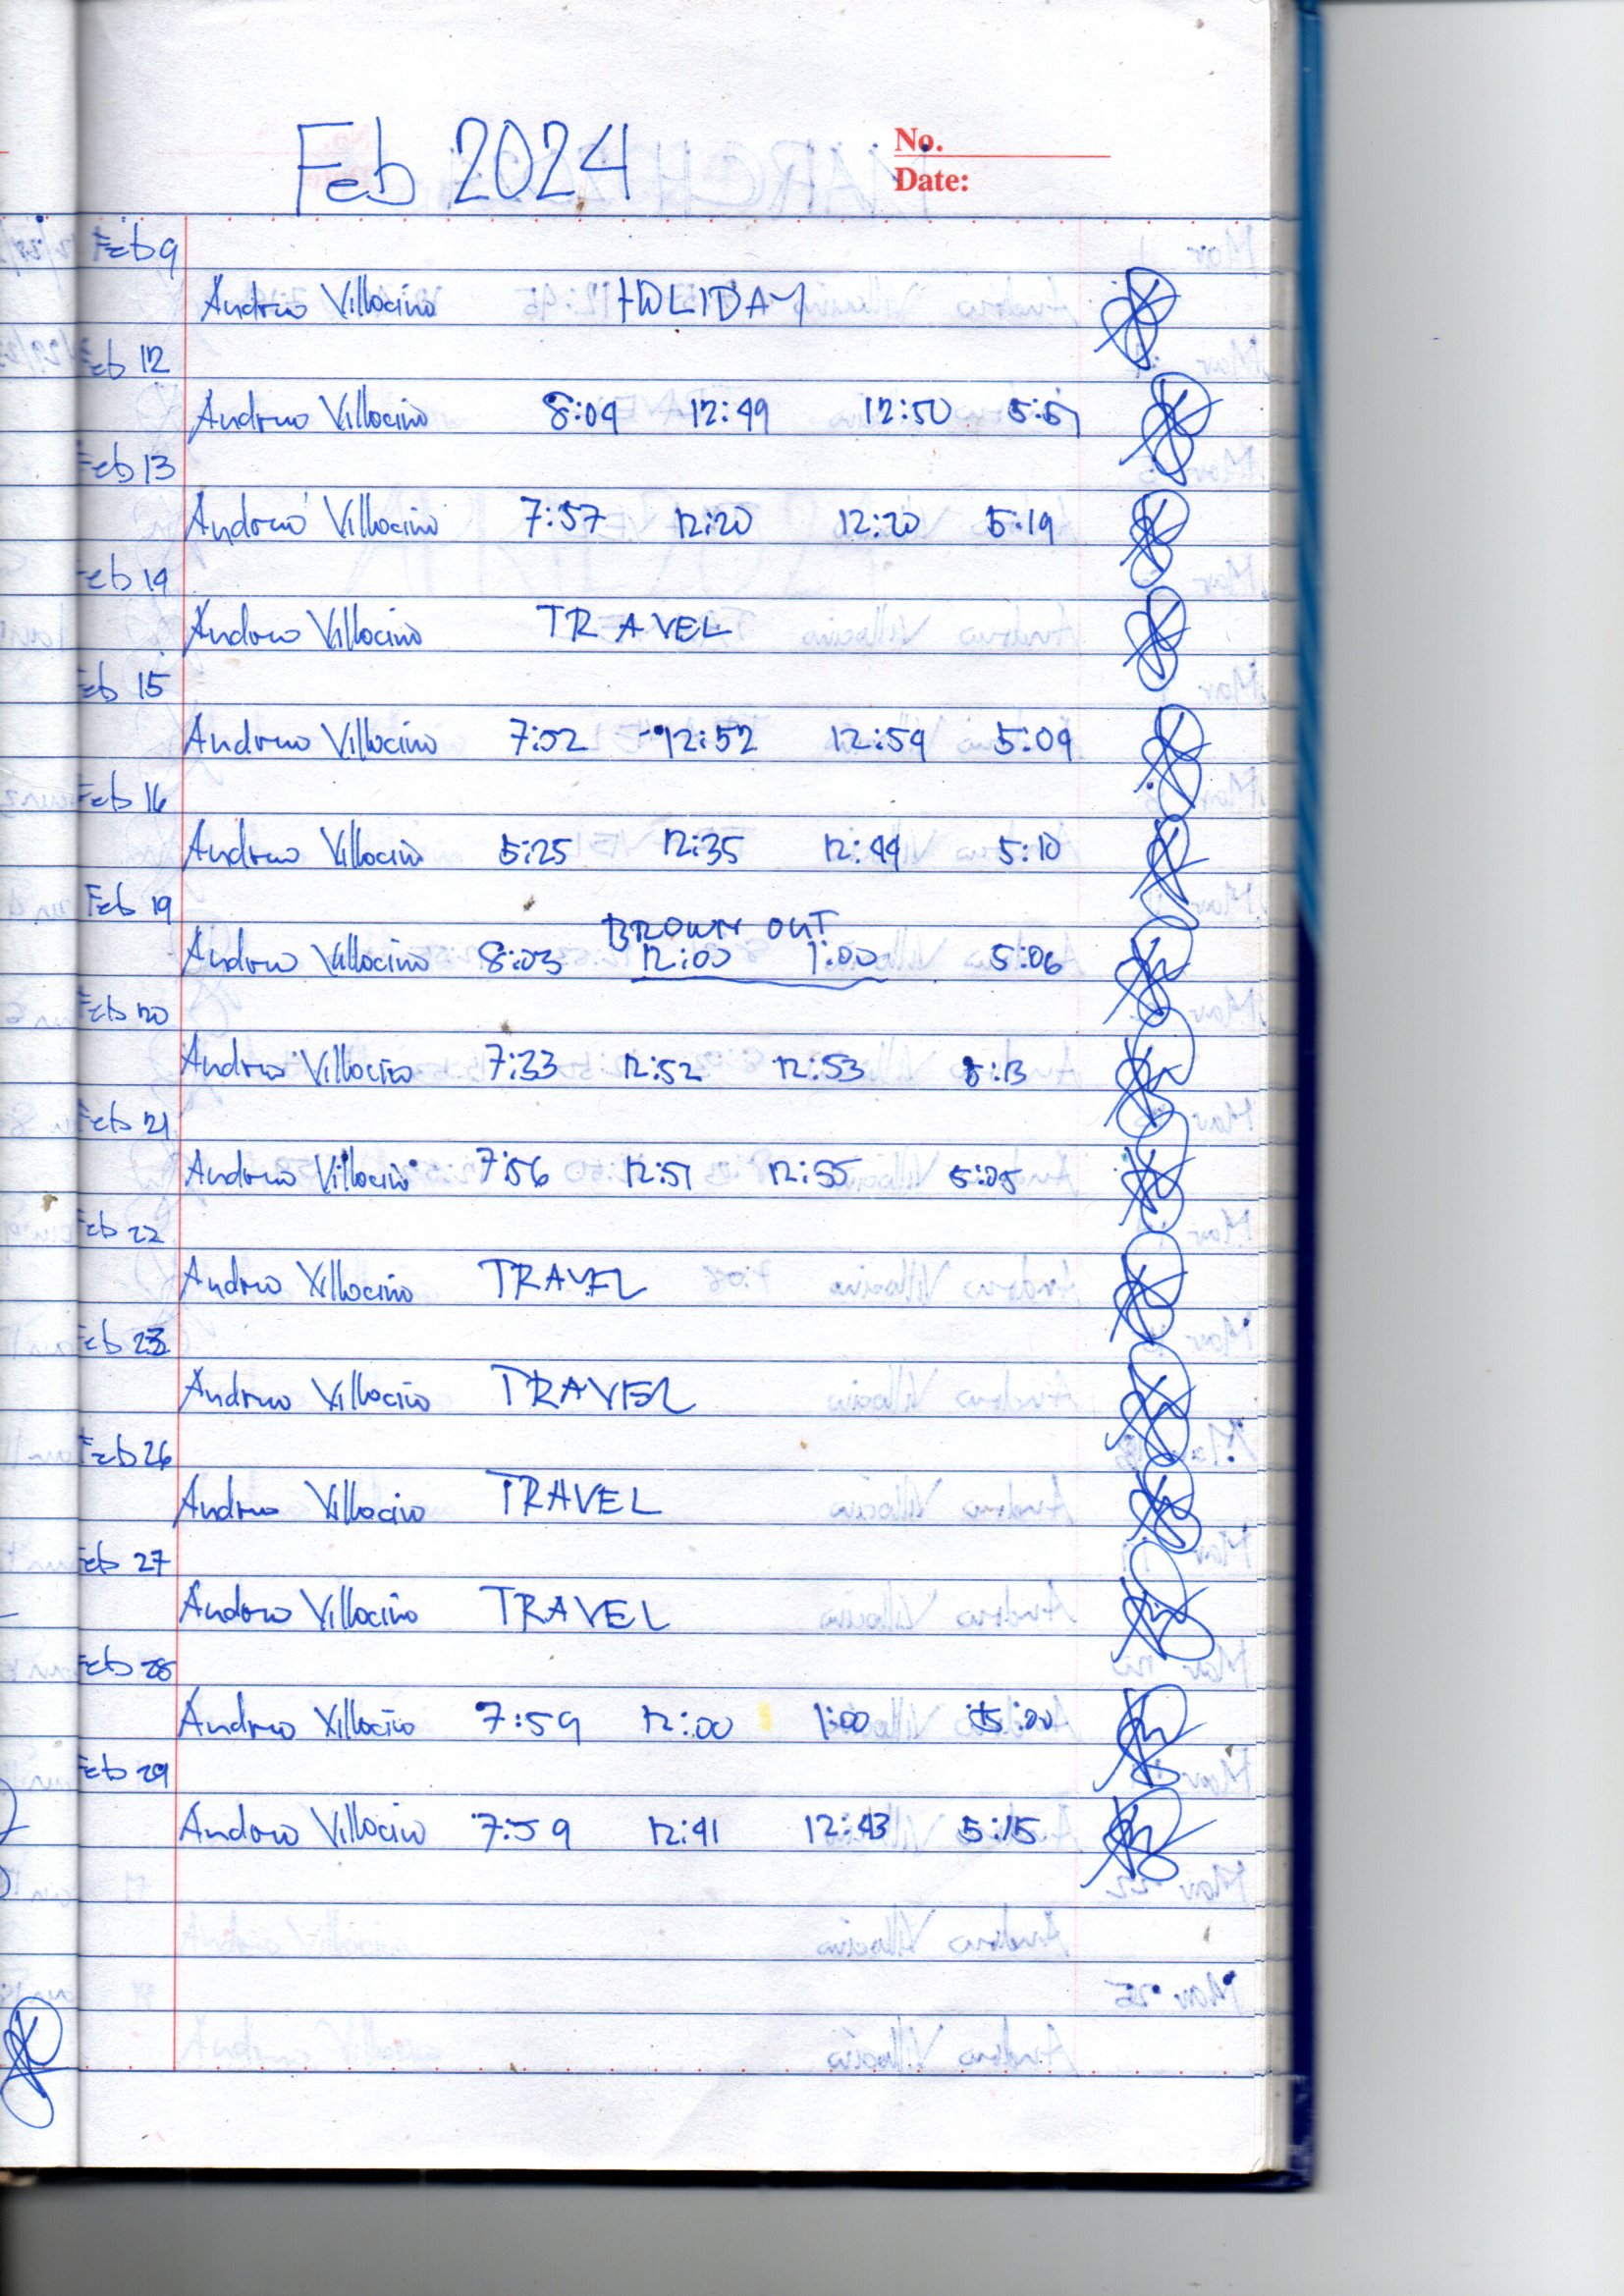 Feb 2024
No.
Date:
Feb 9
Andrew Villacino HOLIDAY
Feb 12
Andrew Villacino 8:04 12:49 12:50 5:51
Feb 13
Andrew Villacino 7:57 12:20 12:20 5:19
Feb 14
Andrew Villacino TRAVEL
Feb 15
Andrew Villacino 7:52 12:52 12:59 5:09
Feb 16
Andrew Villacino 5:25 12:35 12:44 5:10
Feb 19
BROWN OUT
Andrew Villacino 8:03 12:00 1:00 5:06
Feb 20
Andrew Villacino 7:33 12:52 12:53 5:13
Feb 21
Andrew Villacino 7:56 12:51 12:55 5:05
Feb 22
Andrew Villacino TRAVEL
Feb 23
Andrew Villacino TRAVEL
Feb 26
Andrew Villacino TRAVEL
Feb 27
Andrew Villacino TRAVEL
Feb 28
Andrew Villacino 7:59 12:00 1:00 5:00
Feb 29
Andrew Villacino 7:59 12:41 12:43 5:15